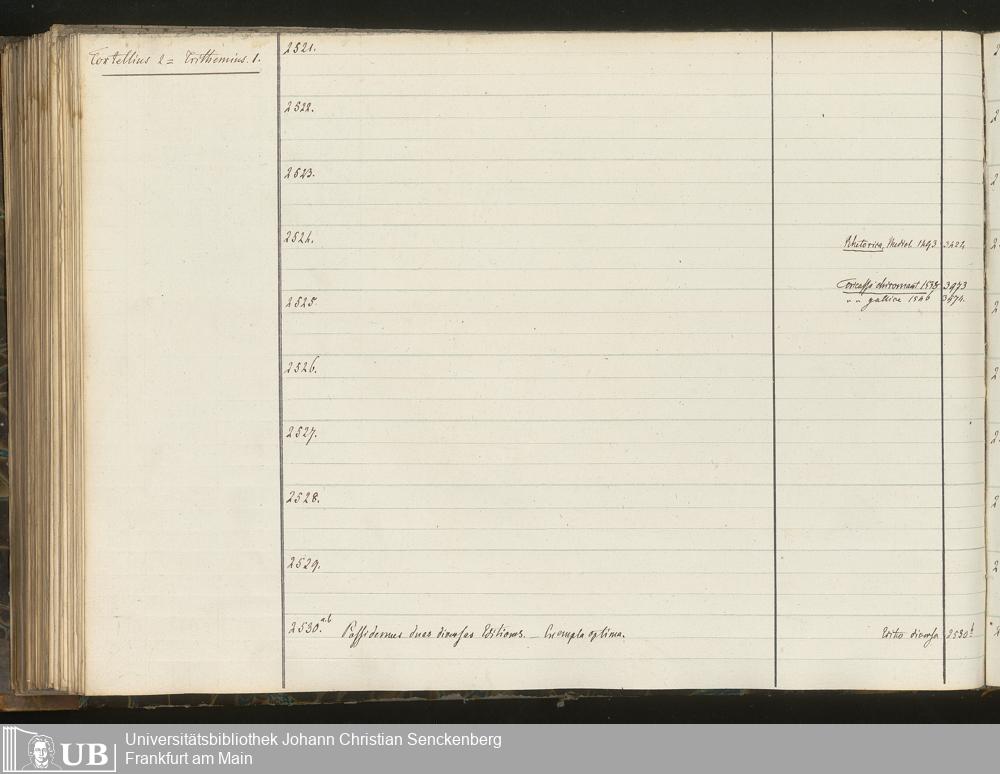 Tortellius 2 = Trithemius. 1.
2521.
2522.
2523.
2524. Rhetorica, Mediol. 1493. 3424.
Coricaffo chiromant. 1535 3973
2525. „ „ gallice 1546 3974.
2526.
2527.
2528.
2529.
2530. a.b Possidemus duas diversas Editiones. — Exempla optima. Editio diversa 2530b
UB Universitätsbibliothek Johann Christian Senckenberg
Frankfurt am Main